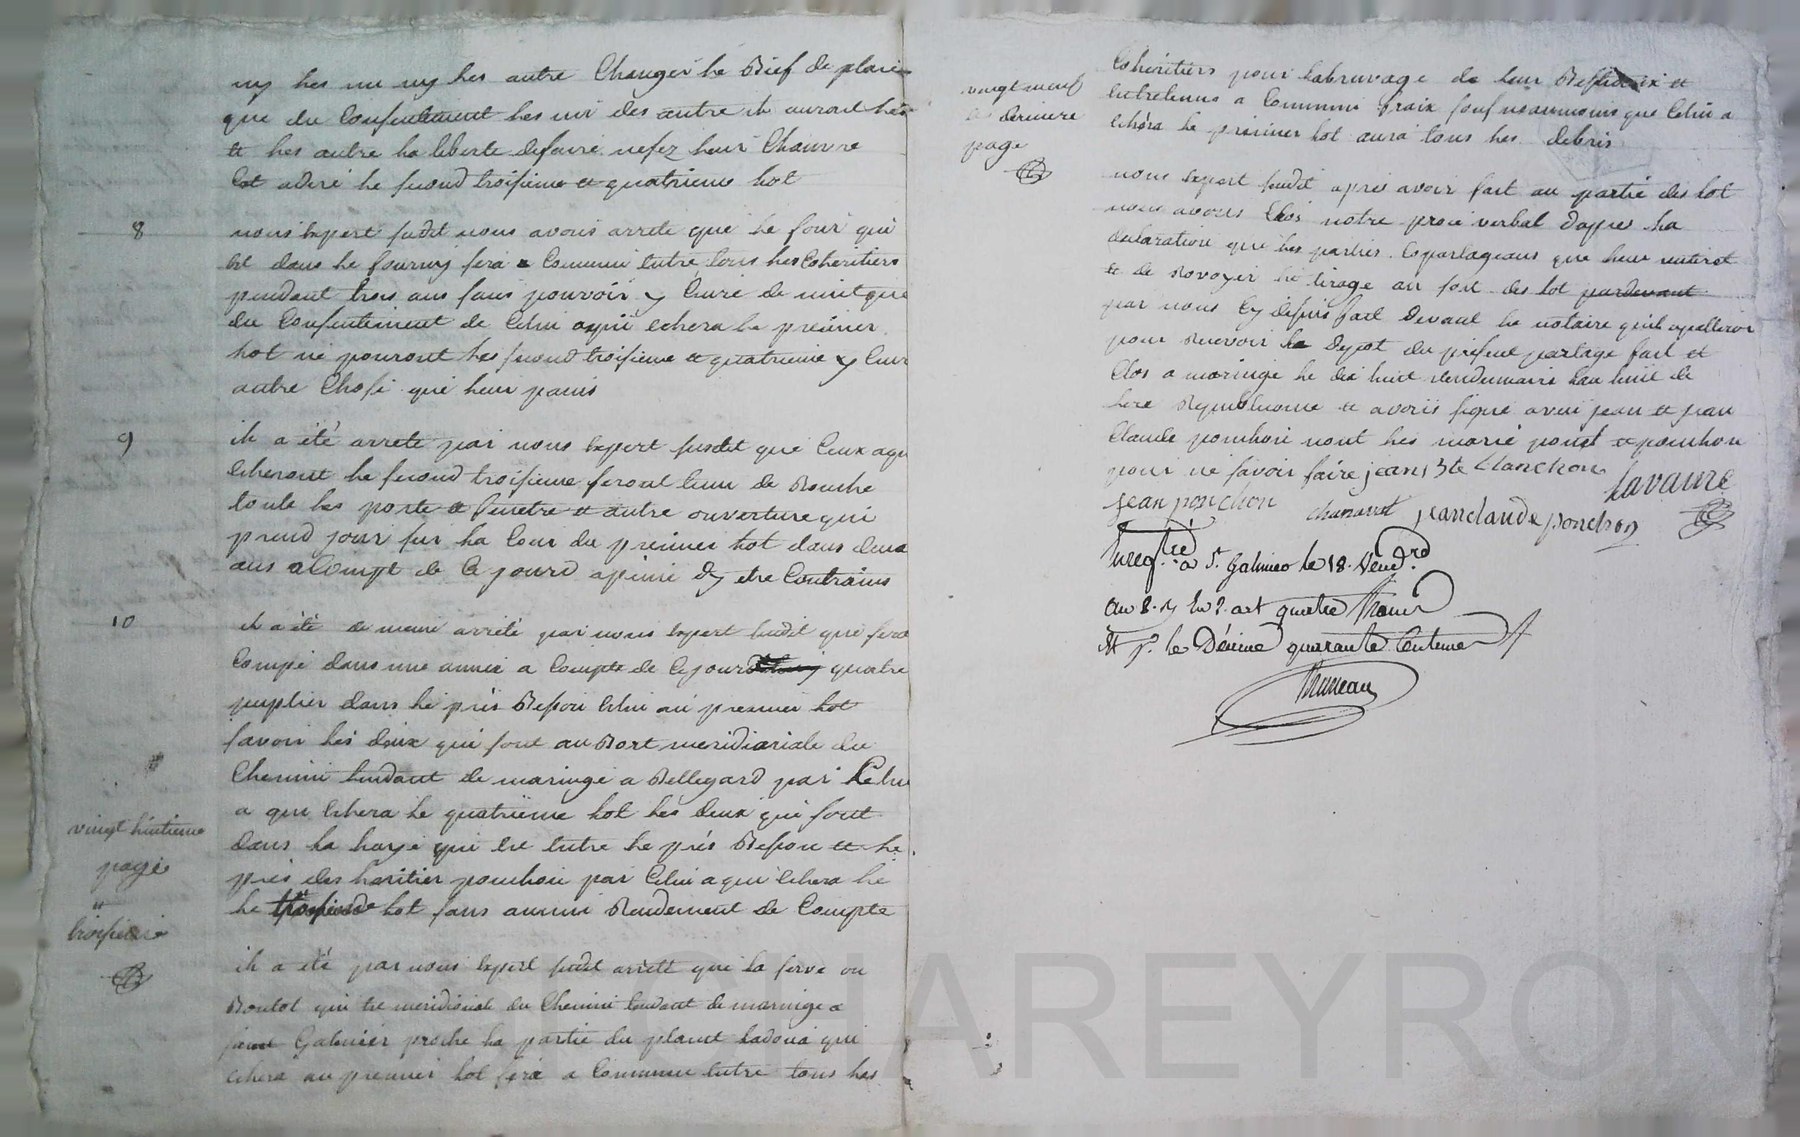 ny les un ny les autre Changer le Bief de place
que du Consentement les un des autre ils auront les
et les autre la liberte defaire nefez leur Chanvre
Cot aderé le second troisieme et quatrieme lot
8
nous Expert sudit nous avons arrete que le four qui
Est dans le fournij sera a Commun Entre tous les Coheritiers
pendant trois ans sans pouvoir y Cuire de nuit que
du Consentement de Celui aqui Echera le premier
lot ne pouront les second troisieme et quatrieme y Cuir
autre Chose que leur pains
9
il a été arreté par nous Expert susdit que Ceux aqui
Echeront le second troisieme seront tenu de Bouche
toute les porte et fenetre et autre ouverture qui
prend jour sur la Cour du premier lot dans deux
ans a Compt de Ce jourd apeine dy etre Contrains
10
il a été de meme arreté par nous Expert sudit que sera
Coupé dans une année a Compte de Ce jourd quatre
puplier dans le prés Besson Echu au premier lot
savoir les deux qui sont au Bort meridiariale du
Chemin tendant de maringe a Bellegard par Celui
a qui Echera le quatrieme lot les deux qui sont
dans la haye qui Est Entre le prés Besson et le
prés des haritier ponchon par Celui a qui Echera le
le troisieme lot sans aucun Rendement de Compte
vingt huitieme
page
il a été par nous Expert sudit arrété que la serve ou
Boutot qui Est meridionale du Chemin tendant de maringe a
saint Galmier proche la partie du planet Ladoua qui
Echera au premier lot sera a Commun Entre tous les
vingt neuf
et derniere
page
Coheritiers pour Labruvage de leur Bestiaux et
Entretenus a Commun fraix sauf neanmoins que Celui a
Echéra le premier lot aura tous les debris
nous Expert sudit apres avoir fait au partie des lot
nous avons Clos notre procé verbal d'apres la
declaration que les parties Copartageans que leur
et de Renvoyer le tirage au sort des lot pardevant
par nous Cy depuis fait devant le notaire quils apelleron
pour Recevoir le depot du present partage fait et
Clos a maringe le dix huit vendemaire Lan huit de
Lere Republicaine et avons signé avec jean et jean
Claude ponchon nont les marié ponst et ponchon
pour ne savoir faire jean Bte Clanchon Lavaure
jean ponchon chananst jean claude ponchon
Enregtré a St. Galmier le 18. Vend.re
an 8. art quatre francs
et pr. le Décime quarante Centimes
Thuneau
CHAREYRON